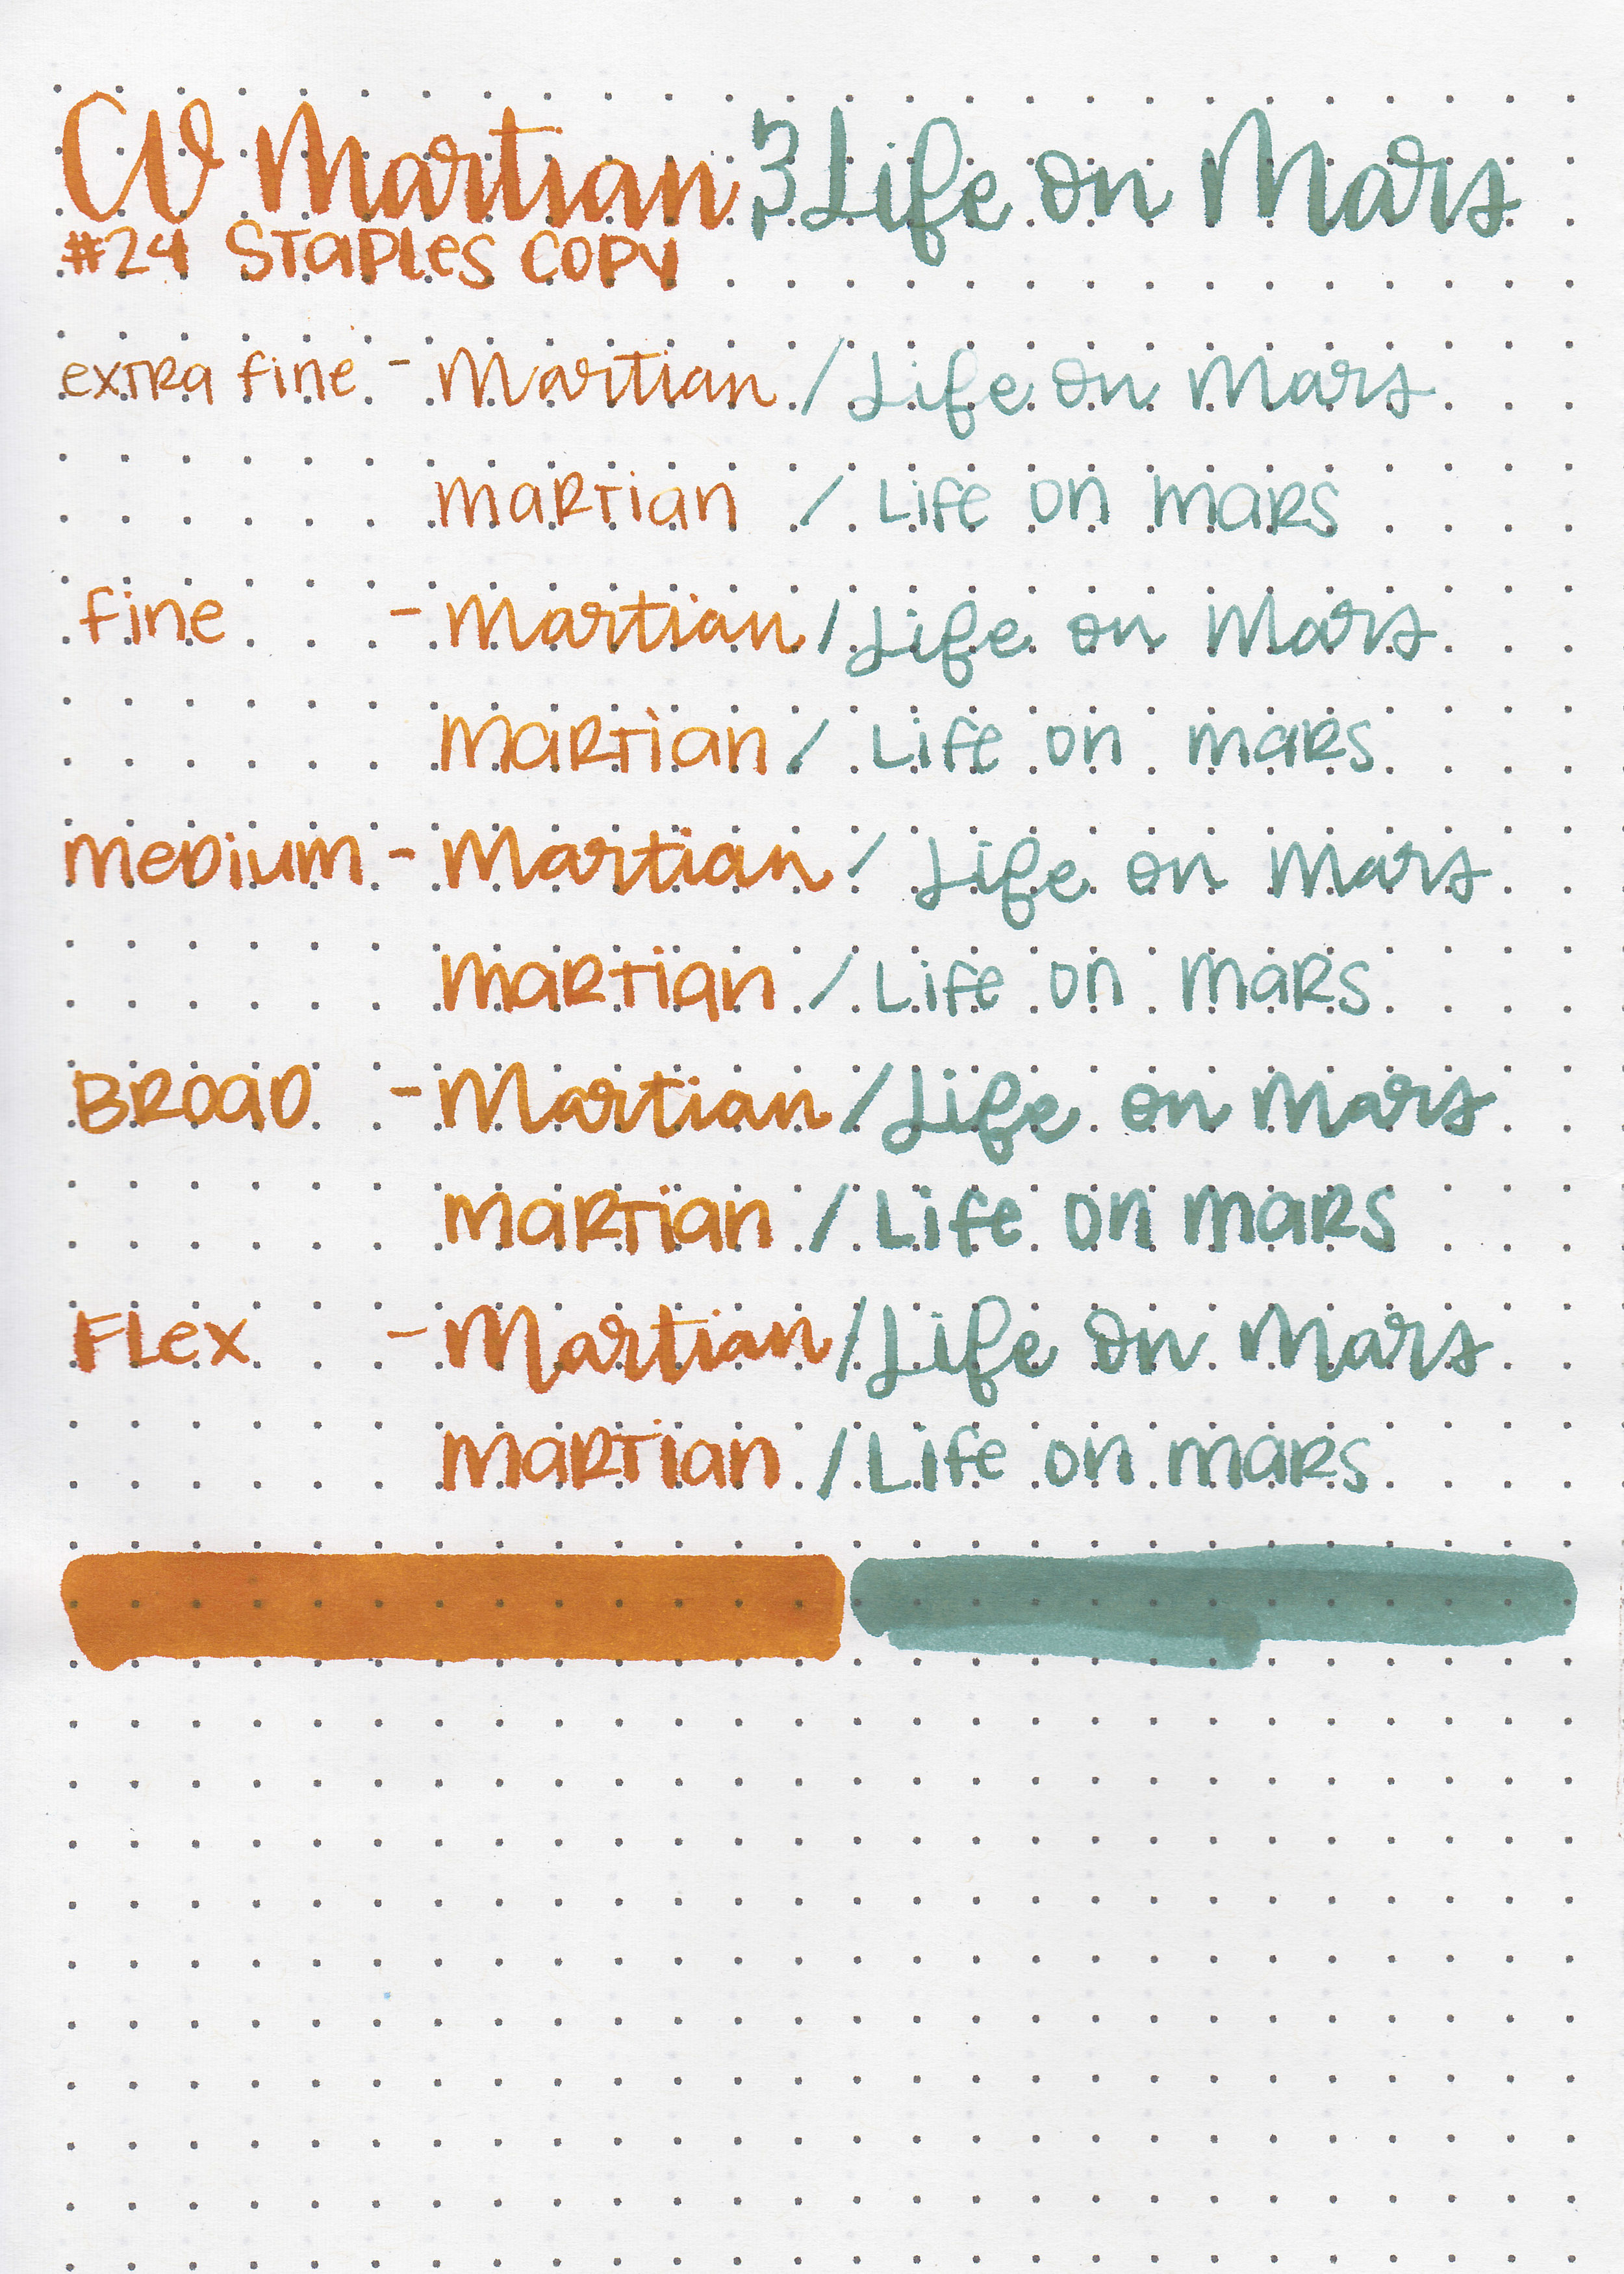 CV Martian & Life on Mars
#24 Staples Copy
extra fine - Martian / Life on Mars
martian / Life on mars
fine - Martian / Life on Mars
martian / Life on mars
Medium - Martian / Life on Mars
martian / Life on mars
Broad - Martian / Life on Mars
martian / Life on mars
Flex - Martian / Life on Mars
martian / Life on mars